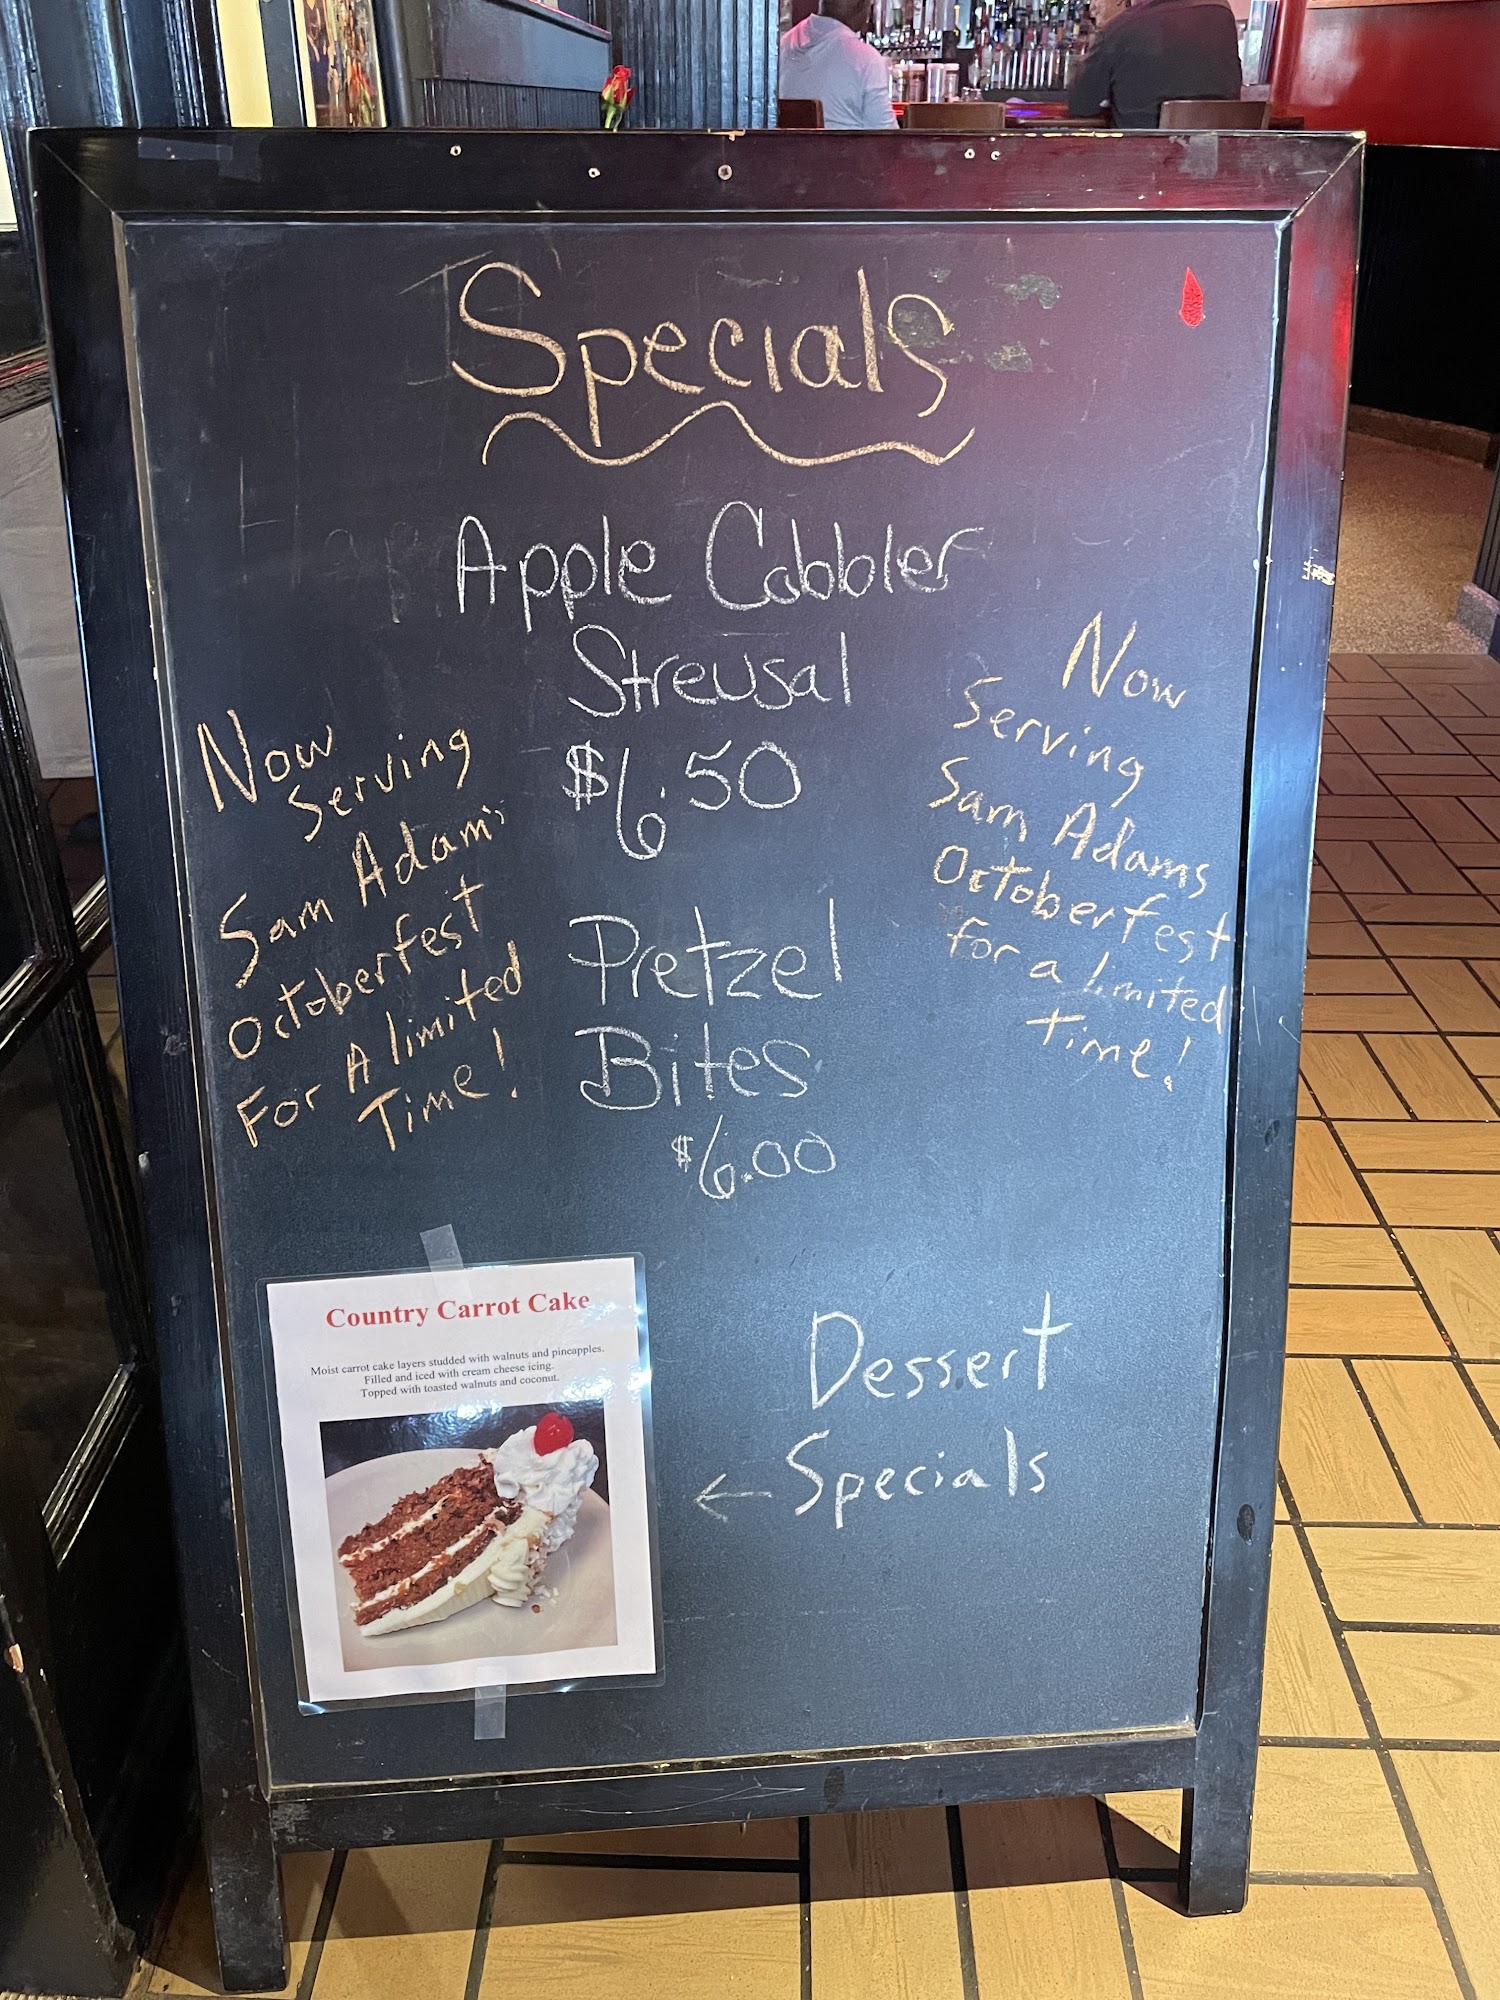 Specials
Apple Cobbler
Streusal
$6.50
Now
Serving
Sam Adam's
Octoberfest
For A limited
Time!
Now
Serving
Sam Adams
Octoberfest
for a limited
Time!
Pretzel
Bites
$6.00
Country Carrot Cake
Moist carrot cake layers studded with walnuts and pineapples.
Filled and iced with cream cheese icing.
Topped with toasted walnuts and coconut.
Dessert
← Specials